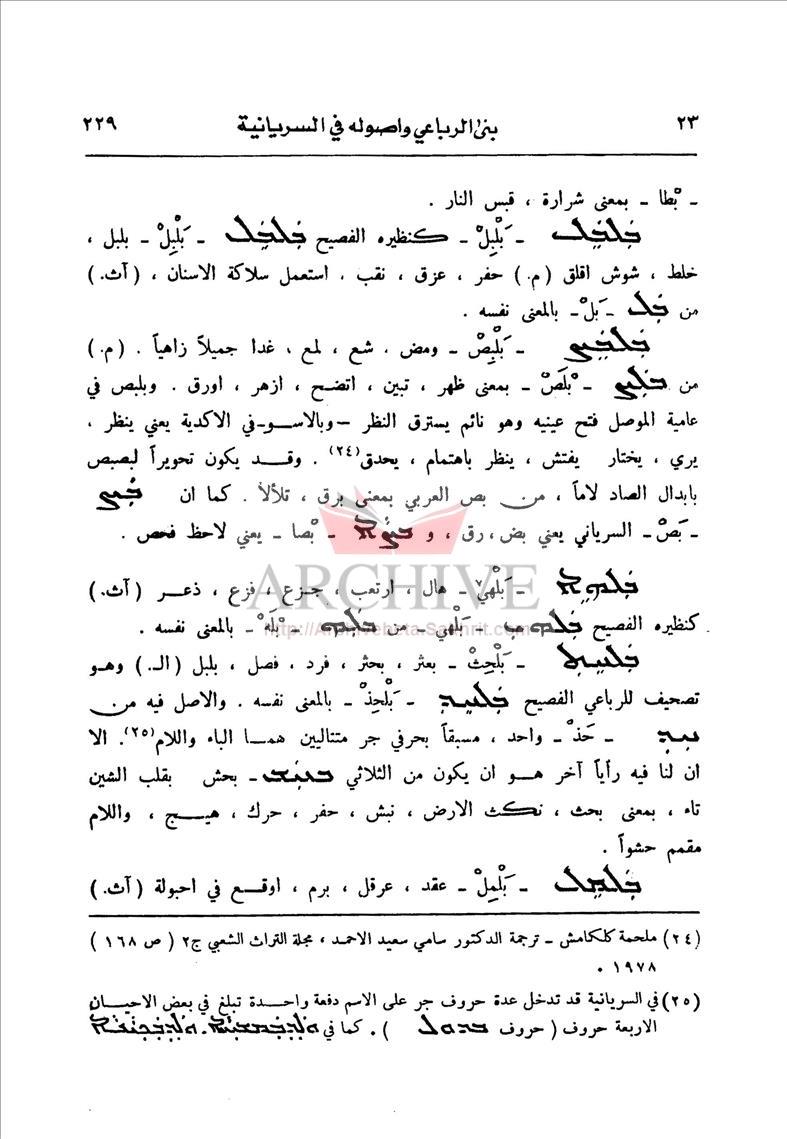 ٢٣ بنى الرباعي واصوله في السريانية ٢٢٩
ـ بْطا ـ بمعنى شرارة ، قبس النار .
ܒܲܠܒܸܠ ـ بَلْبِلْ ـ كنظيره الفصيح ܒܲܠܒܸܠ ـ بَلْبِلْ ـ بلبل ،
خلط ، شوش اقلق (م.) حفر ، عزق ، نقب ، استعمل سلاكة الاسنان ، (آث.)
من ܒܲܠ ـ بَلْ ـ بالمعنى نفسه .
ܒܲܠܒܸܨ ـ بَلْبِصْ ـ ومض ، شع ، لمع ، غدا جميلاً زاهياً . (م.)
من ܒܠܲܨ ـ بْلَصْ ـ بمعنى ظهر ، تبين ، اتضح ، ازهر ، اورق . وبلبص في
عامية الموصل فتح عينيه وهو نائم يسترق النظر — وبالاسو ـ في الاكدية يعني ينظر ،
يري ، يختار يفتش ، ينظر باهتمام ، يحدق(٢٤) . وقد يكون تحويراً لبصبص
بابدال الصاد لاماً ، من بص العربي بمعنى برق ، تلألأ . كما ان ܒܲܨ
ـ بَصْ ـ السرياني يعني بض ، رق ، و ܒܨܵܐ ـ بْصا ـ يعني لاحظ فحص .
ARCHIVE
ܒܲܠܗܹܐ ـ بَلْهيْ ـ هال ، ارتعب ، جزع ، فزع ، ذعر (آث.)
http://Archivebeta.Sakhrit.com
كنظيره الفصيح ܒܲܠܗܝ ـ بَلْهي ـ من ܒܠܗ ـ بْلَهْ ـ بالمعنى نفسه .
ܒܲܠܚܸܬ ـ بَلْحِثْ ـ بعثر ، بحثر ، فرد ، فصل ، بلبل (الـ) وهو
تصحيف للرباعي الفصيح ܒܲܠܚܸܕ ـ بَلْحِذْ ـ بالمعنى نفسه . والاصل فيه من
ܚܕ ـ حَذْ ـ واحد ، مسبقاً بحرفي جر متتاليين همـا الباء واللام(٢٥). الا
ان لنا فيه رأياً آخر هو ان يكون من الثلاثي ܒܚܫ ـ بحش بقلب الشين
تاء ، بمعنى بحث ، نكث الارض ، نبش ، حفر ، حرك ، هيج ، واللام
مقمم حشواً .
ܒܲܠܡܸܠ ـ بَلْمِلْ ـ عقد ، عرقل ، برم ، اوقع في احبولة (آث.)
(٢٤) ملحمة كلكامش ـ ترجمة الدكتور سامي سعيد الاحمد ، مجلة التراث الشعبي ج٢ ( ص ١٦٨ )
١٩٧٨ .
(٢٥) في السريانية قد تدخل عدة حروف جر على الاسم دفعة واحدة تبلغ في بعض الاحيان
الاربعة حروف ( حروف ܒܕܘܠ ) . كما في